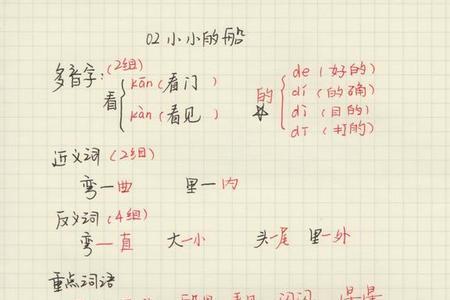 02 小小的船
多音字:(2组)
看 kān(看门) kàn(看见)
的 de(好的) dí(的确) dì(目的) dī(打的)
近义词(2组)
弯—曲 里—内
反义词(4组)
弯—直 大—小 头—尾 里—外
重点词语